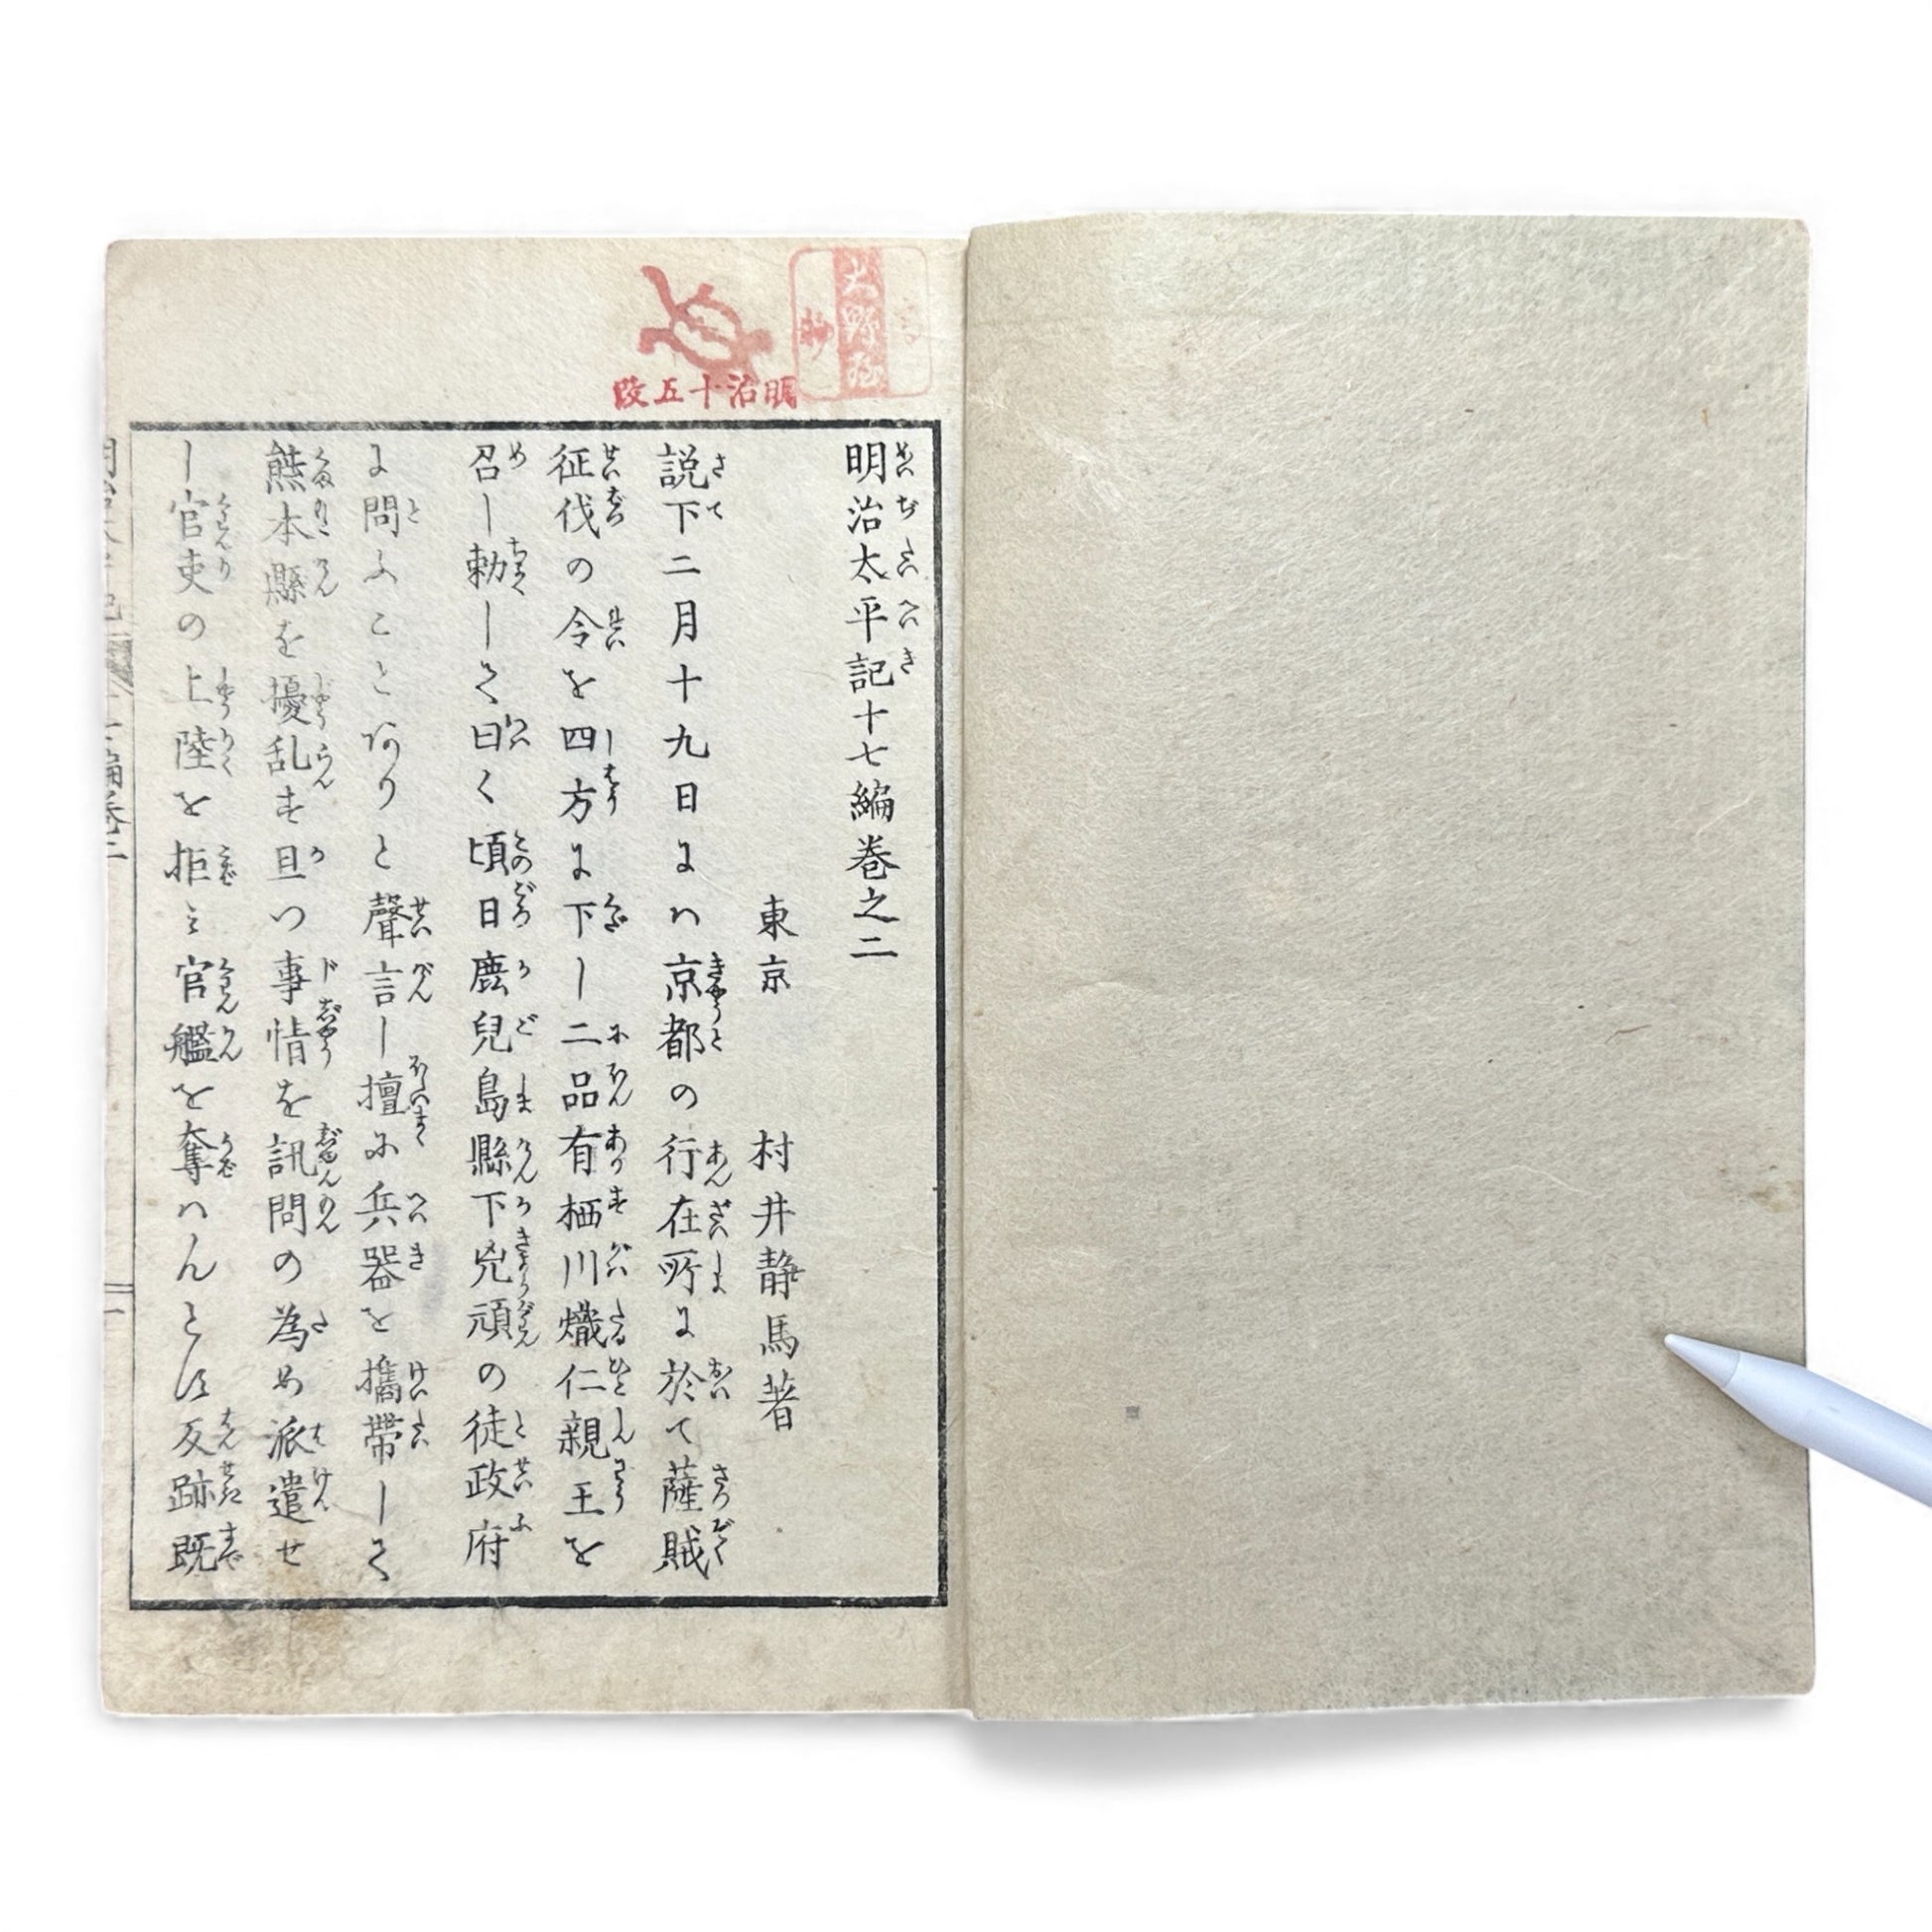 明治十五改
明治太平記十七編巻之二
東京 村井静馬著
説下二月十九日にハ京都の行在所に於て薩賊
征伐の令を四方に下し二品有栖川熾仁親王を
召し勅して曰く頃日鹿兒島縣下兇頑の徒政府
に問ふことありと聲言し擅に兵器を攜帶して
熊本縣を擾乱す旦つ事情を訊問の為め派遣せ
し官吏の上陸を拒ミ官艦を奪ハんとす反跡既